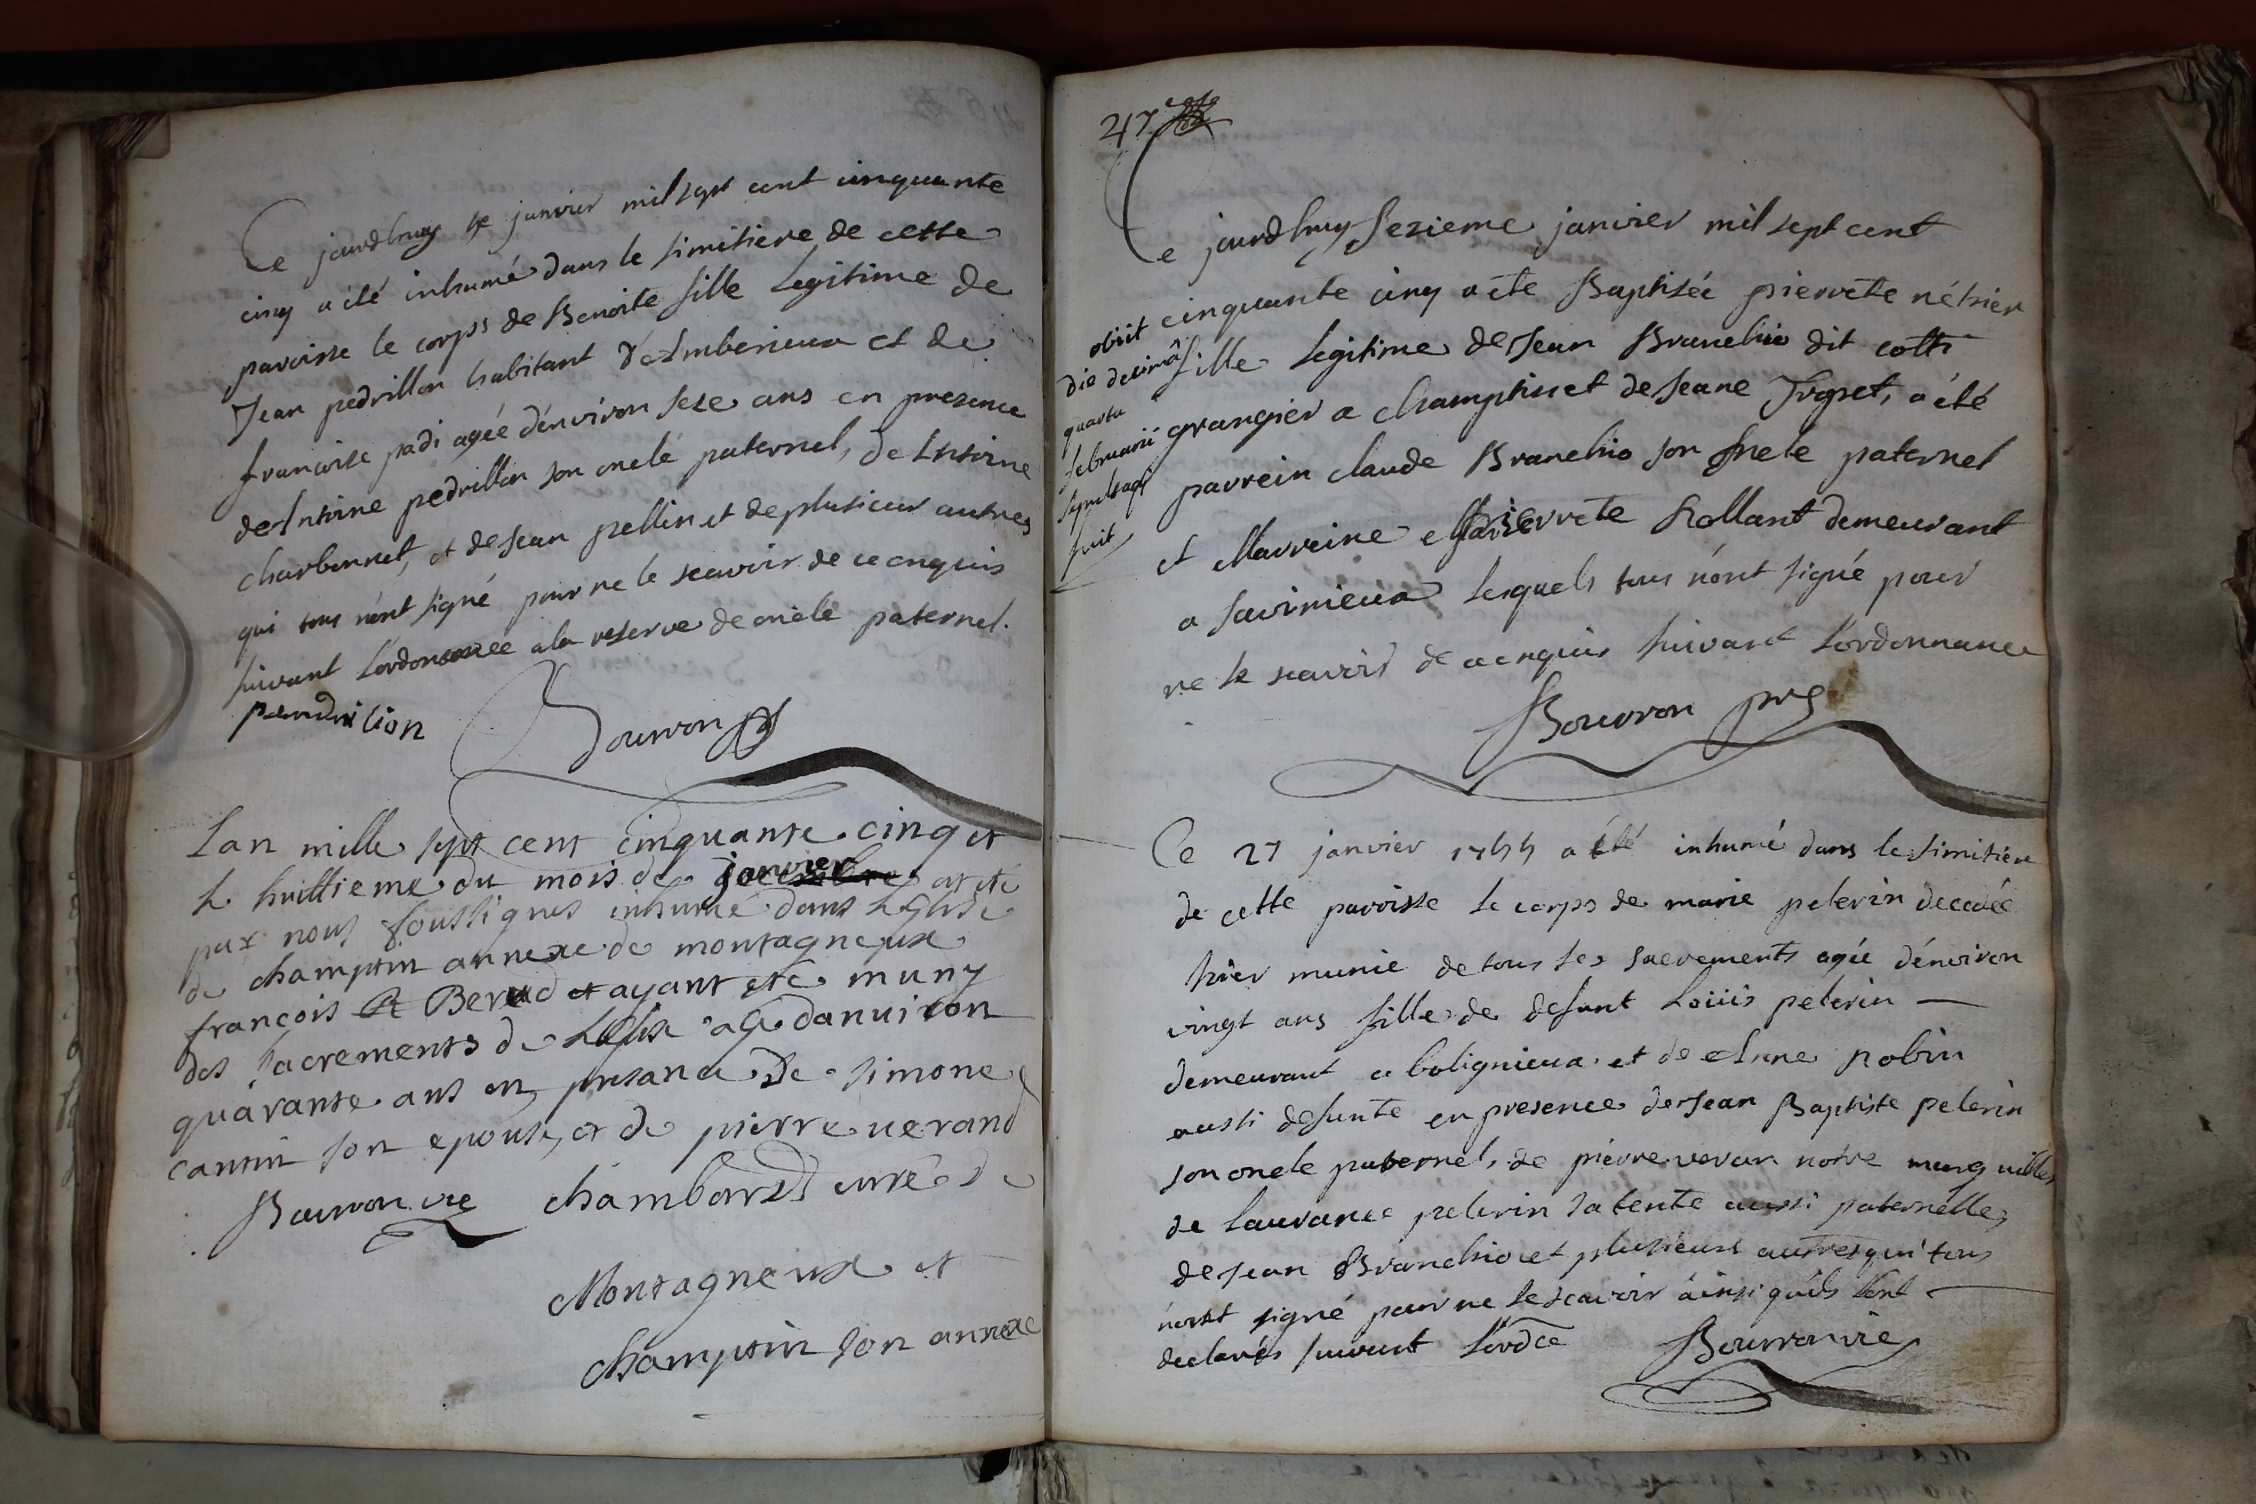 Ce jourdhuy janvier mil sept cent cinquante
cinq a été inhumé dans le simitiere de cette
paroisse le corps de Benoite fille legitime de
Jean pedrillon habitant d'Amberieux et de
francoise padi agée d'environ seze ans en presence
de Antoine pedrillon son oncle paternel, de Antoine
charbonnet, et de Jean pellin et de plusieur autres
qui tous n'ont signé pour ne le scavoir de ce enquis
suivant l'ordonnance a la reserve de oncle paternel.
pendrilion Bouvron
Lan mille sept cent cinquante cinq et
le huittieme du mois de janvier a eté
par nous soussignes inhumé dans leglise
de champtin annexe de montagneux
françois Beraud et ayant eté muny
des sacrements de leglise agé danviron
quarante ans en presance de simone
cantin son epouse, et de pierre verand
Bouvron vic chambard curé de
Montagneux et
champtin son annexe
47
Ce jourdhuy sezieme janvier mil sept cent
cinquante cinq a été Baptisée pierrete né hier
fille legitime de Jean Branchio dit cotti
grangier a champtin et de Jeane, a été
parrein claude Branchio son oncle paternel
et Marreine pierrete Rollant demeurant
a savinieux lesquels tous n'ont signé pour
ne le scavoir de ce enquis suivant l'ordonnance
Bouvron
obiit
die decimâ
quarta
februarii
sepultaq
fuit
Ce 27 janvier 1755 a été inhumé dans le simitiere
de cette paroisse le corps de marie pelerin decedée
hier munie de tous les sacrements agée d'environ
vingt ans fille de defunt Loüis pelerin
demeurant a bolignieux et de Anne robin
aussi defunte en presence de Jean Baptiste pelerin
son oncle paternel, de piérre veran notre marguillier
de laurance pelerin sa tente aussi paternelle,
de Jean Branchio et plusieurs autres qui tous
n'ont signé pour ne le scavoir áinsi qu'ils l'ont
declarés suivant l'ordce Bouvron vic